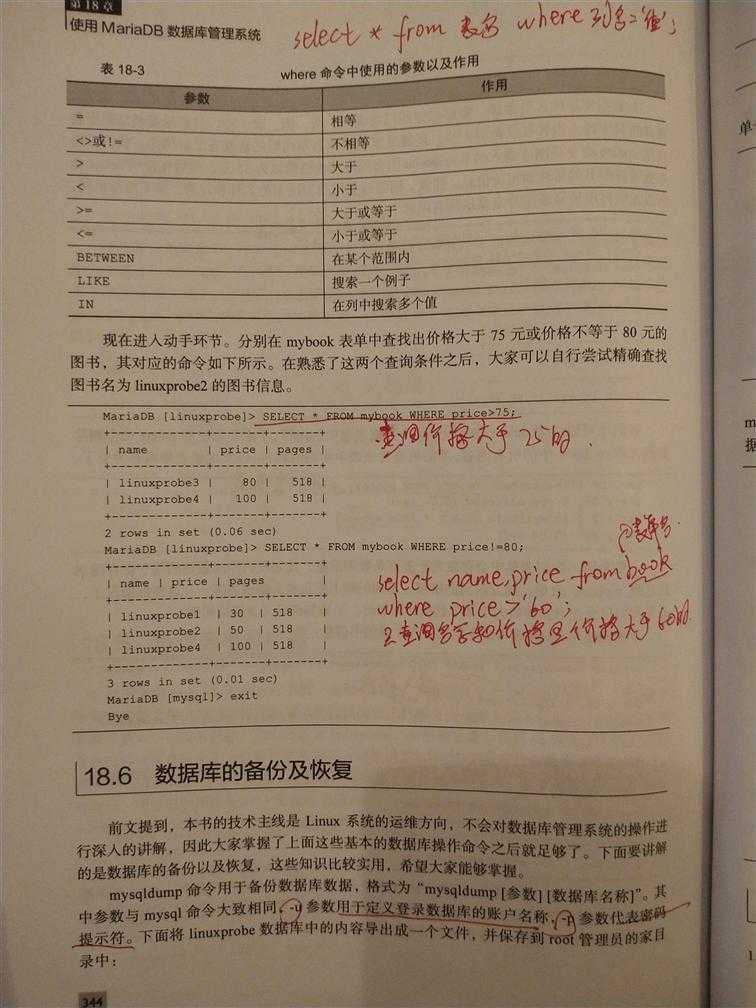 第18章
使用 MariaDB 数据库管理系统
select * from 表名 where 列名='值';
表 18-3
where 命令中使用的参数以及作用
参数 作用
= 相等
<>或!= 不相等
> 大于
< 小于
>= 大于或等于
<= 小于或等于
BETWEEN 在某个范围内
LIKE 搜索一个例子
IN 在列中搜索多个值
现在进入动手环节。分别在 mybook 表单中查找出价格大于 75 元或价格不等于 80 元的
图书，其对应的命令如下所示。在熟悉了这两个查询条件之后，大家可以自行尝试精确查找
图书名为 linuxprobe2 的图书信息。
MariaDB [linuxprobe]> SELECT * FROM mybook WHERE price>75;
+-------------+-------+-------+
| name | price | pages |
+-------------+-------+-------+
| linuxprobe3 | 80 | 518 |
| linuxprobe4 | 100 | 518 |
+-------------+-------+-------+
查询价格大于75的.
2 rows in set (0.06 sec)
MariaDB [linuxprobe]> SELECT * FROM mybook WHERE price!=80;
+-------------+-------+-------+
| name | price | pages |
+-------------+-------+-------+
| linuxprobe1 | 30 | 518 |
| linuxprobe2 | 50 | 518 |
| linuxprobe4 | 100 | 518 |
+-------------+-------+-------+
3 rows in set (0.01 sec)
MariaDB [mysql]> exit
Bye
表单名.
select name,price from book
where price>'60';
查询名字和价格且价格大于60的.
18.6 数据库的备份及恢复
前文提到，本书的技术主线是 Linux 系统的运维方向，不会对数据库管理系统的操作进
行深入的讲解，因此大家掌握了上面这些基本的数据库操作命令之后就足够了。下面要讲解
的是数据库的备份以及恢复，这些知识比较实用，希望大家能够掌握。
mysqldump 命令用于备份数据库数据，格式为“mysqldump [参数] [数据库名称]”。其
中参数与 mysql 命令大致相同，-u 参数用于定义登录数据库的账户名称，-p 参数代表密码
提示符。下面将 linuxprobe 数据库中的内容导出成一个文件，并保存到 root 管理员的家目
录中：
344